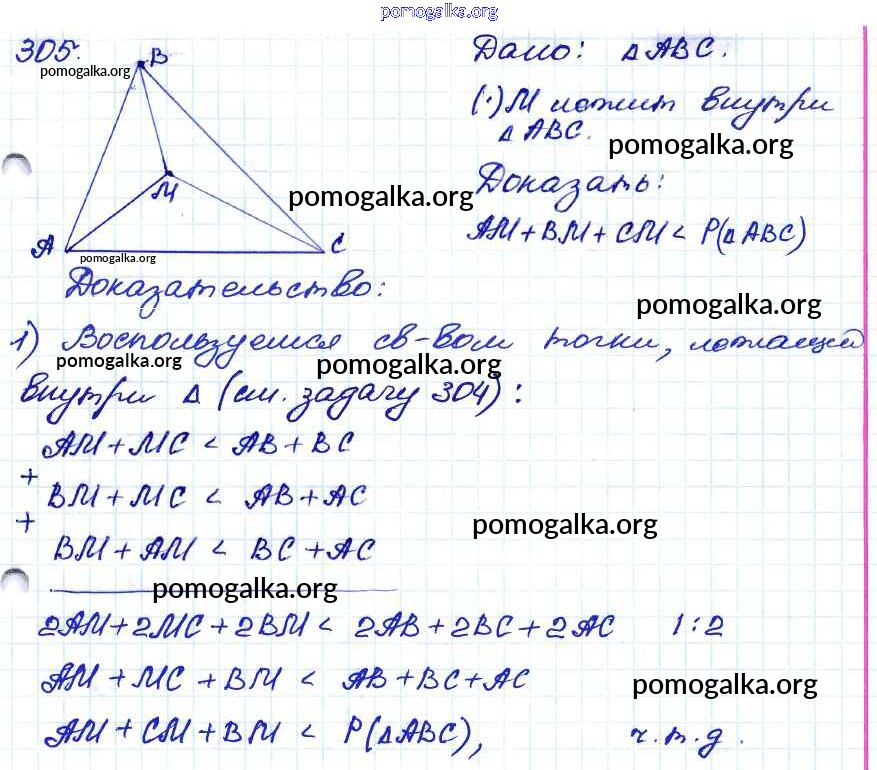 pomogalka.org
305.
pomogalka.org
B
M
A
C
pomogalka.org
Дано: △ABC.
(·)M лежит внутри
△ABC.
pomogalka.org
pomogalka.org
Доказать:
AM+BM+CM < P(△ABC)
Доказательство:
pomogalka.org
1) Воспользуемся св-вом точки, лежащей
pomogalka.org
pomogalka.org
внутри △ (см. задачу 304):
AM+MC < AB+BC
+
BM+MC < AB+AC
+
pomogalka.org
BM+AM < BC+AC
pomogalka.org
2AM+2MC+2BM < 2AB+2BC+2AC |:2
AM+MC+BM < AB+BC+AC
pomogalka.org
AM+CM+BM < P(△ABC), ч.т.д.